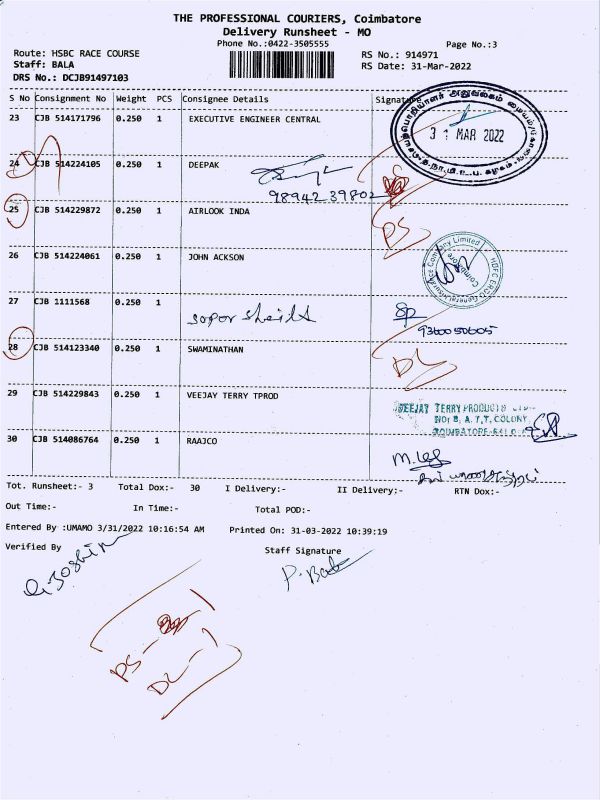 THE PROFESSIONAL COURIERS, Coimbatore
Delivery Runsheet - MO
Phone No.:0422-3505555
Page No.:3
Route: HSBC RACE COURSE
RS No.: 914971
Staff: BALA
RS Date: 31-Mar-2022
DRS No.: DCJB91497103
S No Consignment No Weight PCS Consignee Details Signature
23 CJB 514171796 0.250 1 EXECUTIVE ENGINEER CENTRAL
31 MAR 2022
24 CJB 514224105 0.250 1 DEEPAK
98942 39802
25 CJB 514229872 0.250 1 AIRLOOK INDA
DS
26 CJB 514224061 0.250 1 JOHN ACKSON
HDFC ERGO General Insurance Company Limited
Coimbatore
27 CJB 1111568 0.250 1
sopor sheild
9360050605
28 CJB 514123340 0.250 1 SWAMINATHAN
DL
29 CJB 514229843 0.250 1 VEEJAY TERRY TPROD
VEEJAY TERRY PRODUCTS LTD
NO: 8, A.T.T, COLONY
COIMBATORE
30 CJB 514086764 0.250 1 RAAJCO
Tot. Runsheet:- 3 Total Dox:- 30 I Delivery:- II Delivery:- RTN Dox:-
Out Time:- In Time:- Total POD:-
Entered By :UMAMO 3/31/2022 10:16:54 AM Printed On: 31-03-2022 10:39:19
Verified By Staff Signature
DS -
DL - 1